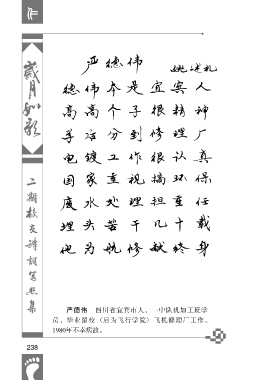 作
岁月如歌
二期校友诗词笔墨集
严德伟
姚述礼
德伟本是宜宾人
高高个子很精神
毕业分到修理厂
电镀工作很认真
国家重视搞环保
废水处理担重任
埋头苦干几十载
他为航修献终身
严德伟 四川省宜宾市人，一中队机加工班学
员，毕业留校（后为飞行学院）飞机修理厂工作。
1980年不幸病故。
238